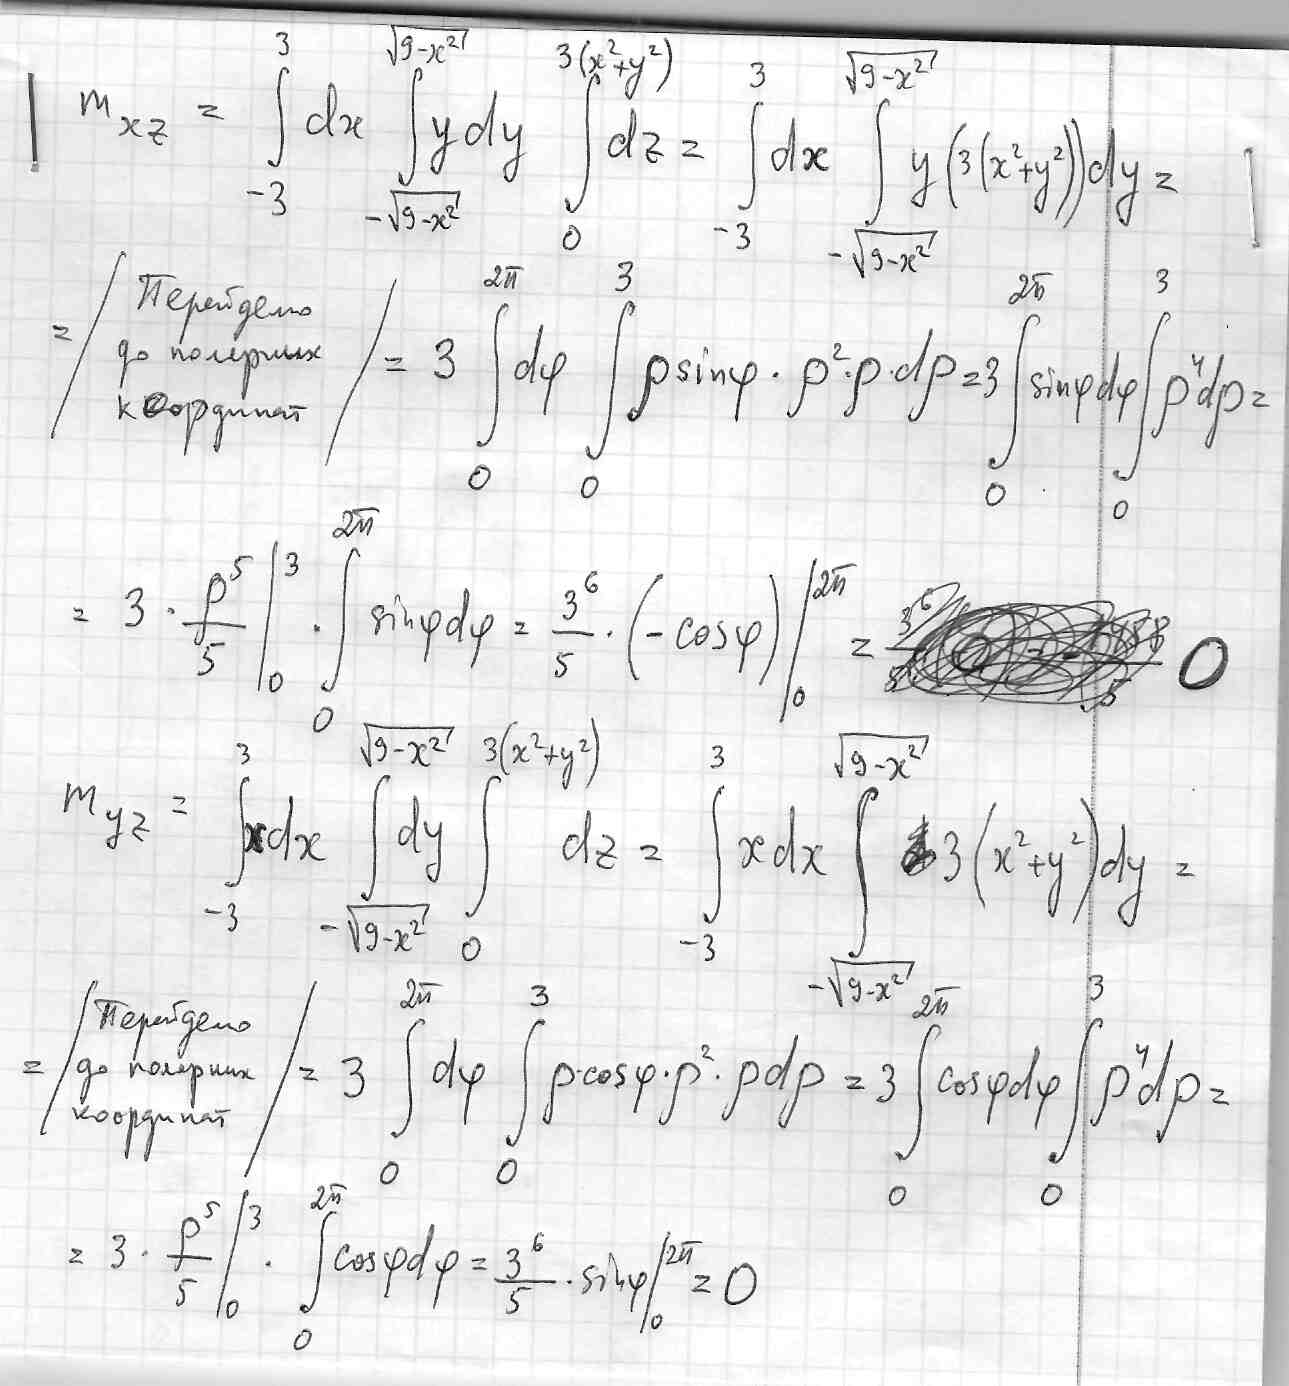 m_{xz} = \int_{-3}^{3} dx \int_{-\sqrt{9-x^2}}^{\sqrt{9-x^2}} y dy \int_{0}^{3(x^2+y^2)} dz = \int_{-3}^{3} dx \int_{-\sqrt{9-x^2}}^{\sqrt{9-x^2}} y (3(x^2+y^2)) dy =
= / Перейдемо до полярних координат / = 3 \int_{0}^{2π} dφ \int_{0}^{3} ρ sinφ · ρ^2 · ρ · dρ = 3 \int_{0}^{2π} sinφ dφ \int_{0}^{3} ρ^4 dρ =
= 3 · \frac{ρ^5}{5} |_{0}^{3} · \int_{0}^{2π} sinφ dφ = \frac{3^6}{5} · (-cosφ) |_{0}^{2π} = 0
m_{yz} = \int_{-3}^{3} x dx \int_{-\sqrt{9-x^2}}^{\sqrt{9-x^2}} dy \int_{0}^{3(x^2+y^2)} dz = \int_{-3}^{3} x dx \int_{-\sqrt{9-x^2}}^{\sqrt{9-x^2}} 3(x^2+y^2) dy =
= / Перейдемо до полярних координат / = 3 \int_{0}^{2π} dφ \int_{0}^{3} ρ · cosφ · ρ^2 · ρ dρ = 3 \int_{0}^{2π} cosφ dφ \int_{0}^{3} ρ^4 dρ =
= 3 · \frac{ρ^5}{5} |_{0}^{3} · \int_{0}^{2π} cosφ dφ = \frac{3^6}{5} · sinφ |_{0}^{2π} = 0